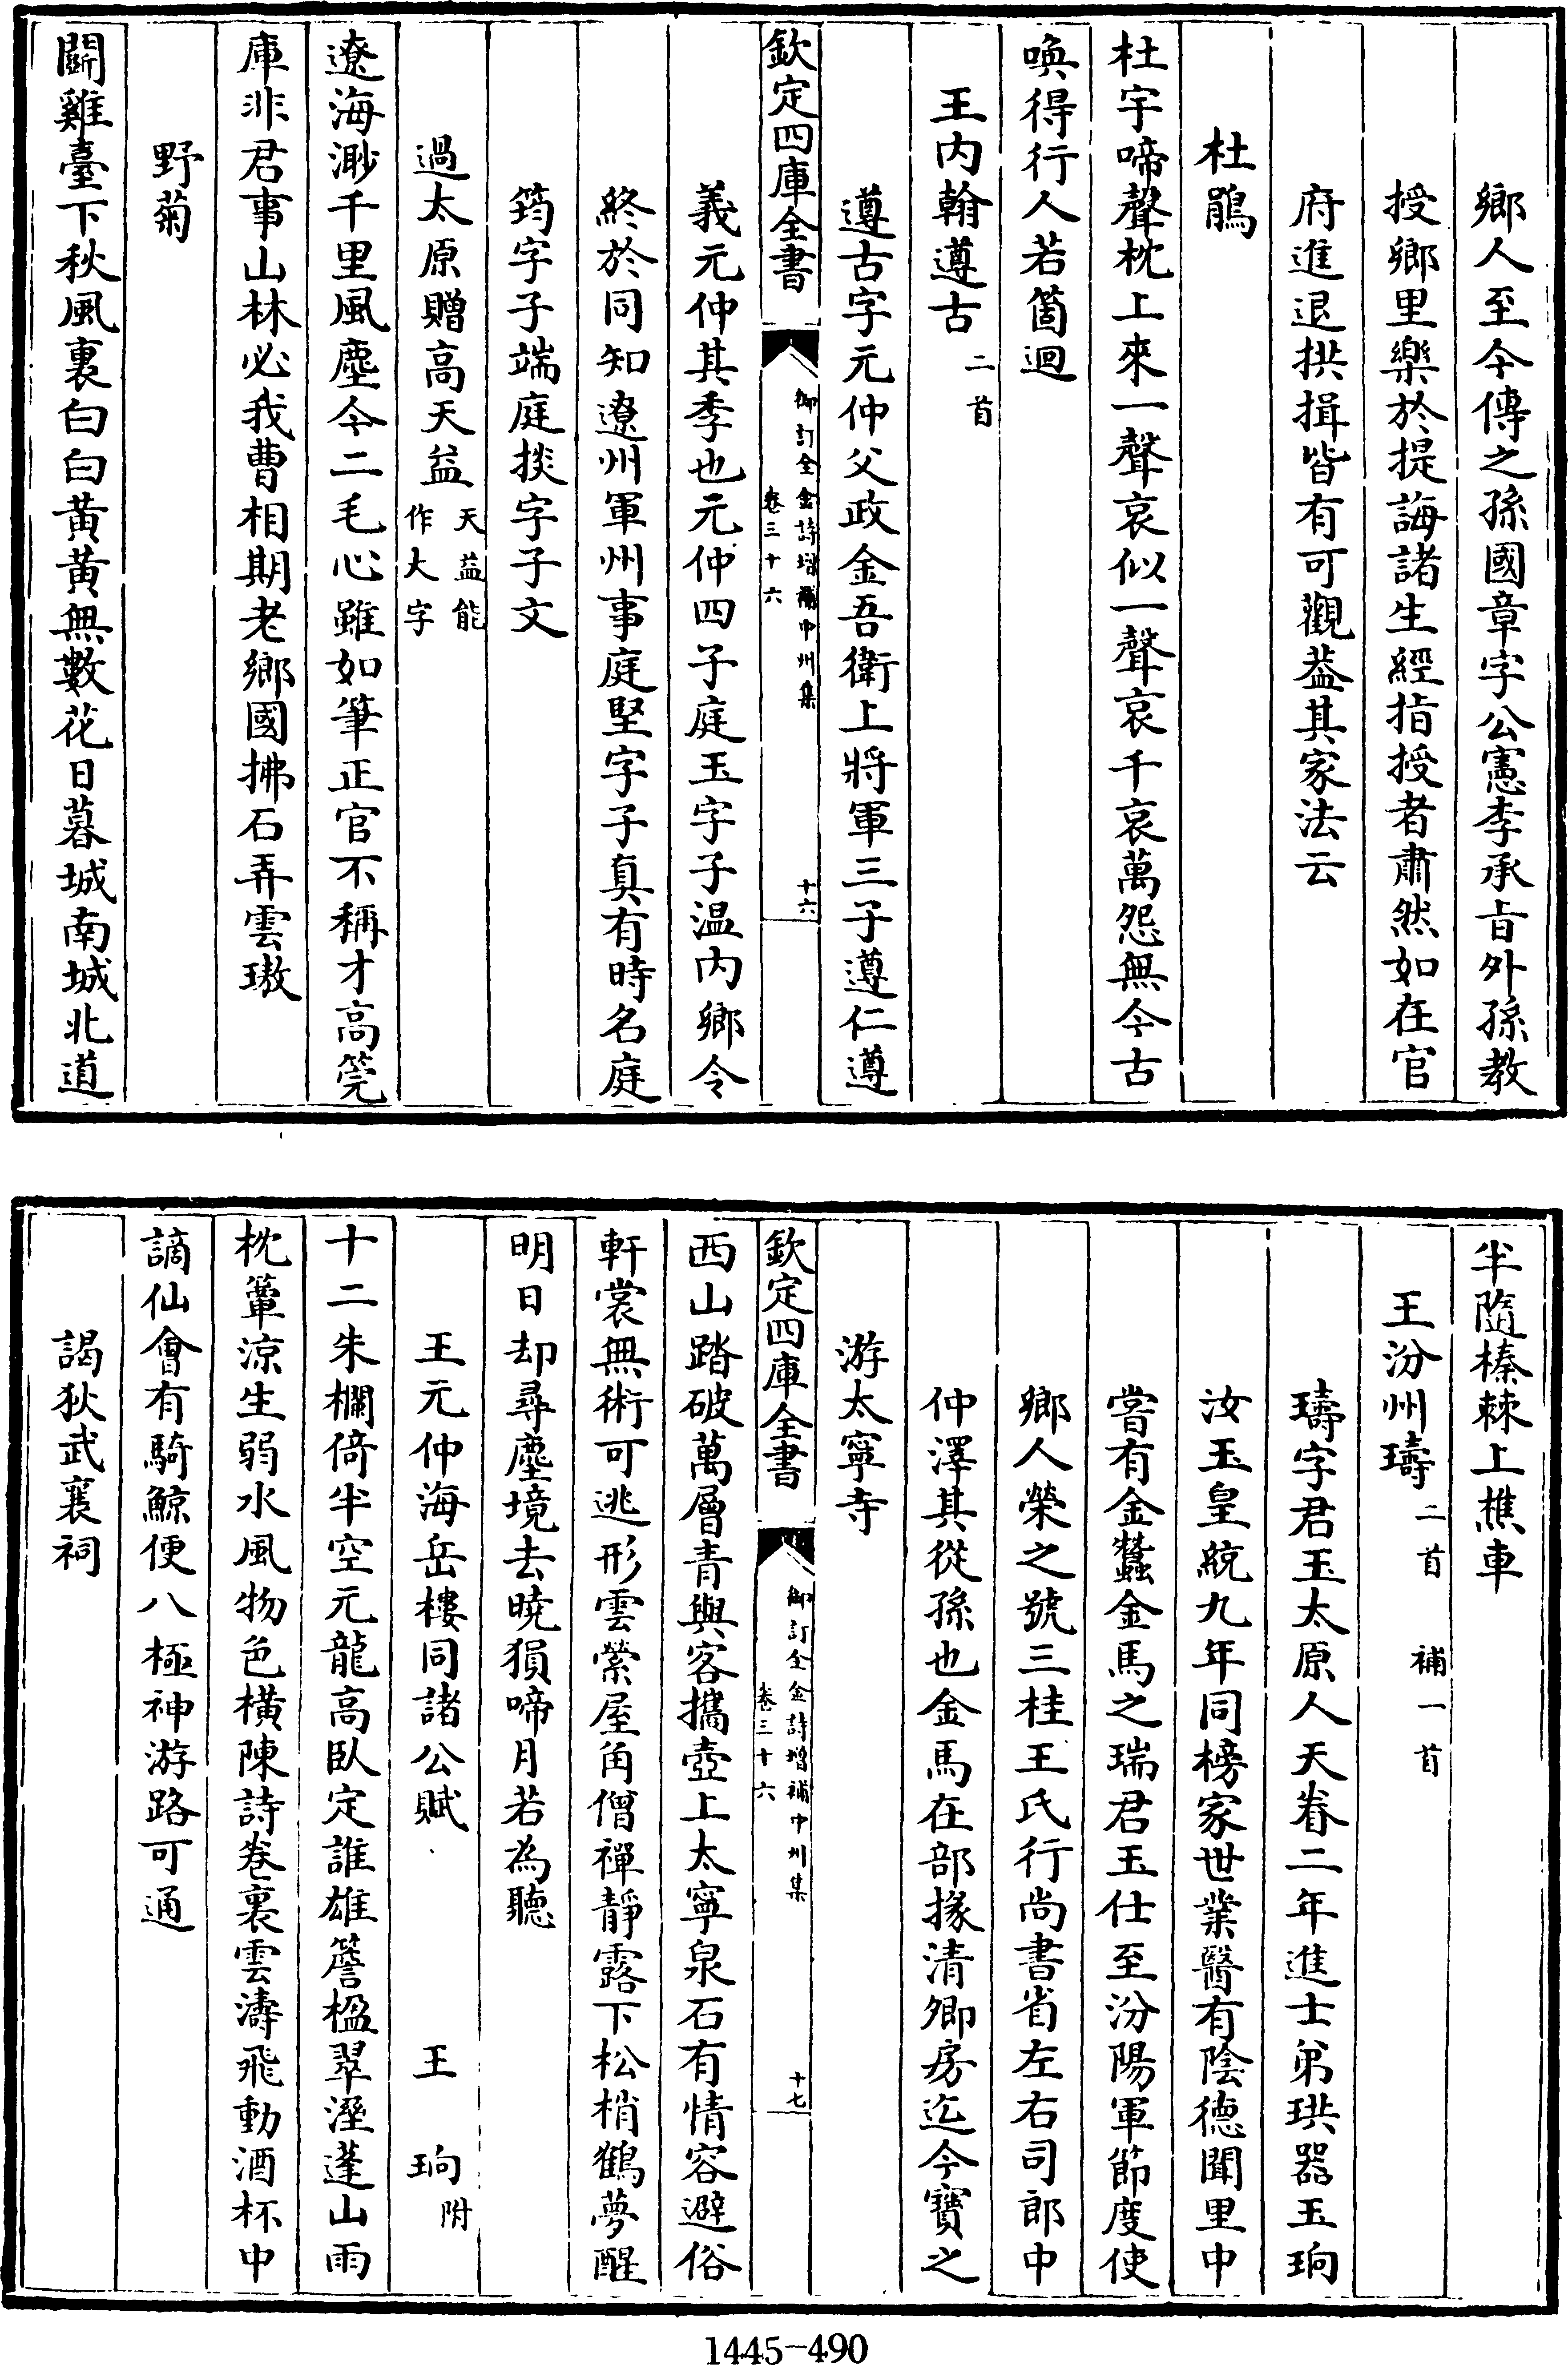 鄉人至今傳之孫國章字公憲李承旨外孫教
授鄉里樂於提誨諸生經指授者肅然如在官
府進退拱揖皆有可觀葢其家法云
杜鵑
杜宇啼聲枕上來一聲哀似一聲哀千哀萬怨無今古
喚得行人若箇迴
王内翰遵古二首
遵古字元仲父政金吾衛上將軍三子遵仁遵
欽定四庫全書 御訂全金詩增補中州集 卷三十六 十六
義元仲其季也元仲四子庭玉字子温内鄉令
終於同知遼州軍州事庭堅字子真有時名庭
筠字子端庭掞字子文
過太原贈高天益天益能作大字
遼海渺千里風塵今二毛心雖如筆正官不稱才高筦
庫非君事山林必我曹相期老鄉國拂石弄雲璈
野菊
鬭雞臺下秋風裏白白黄黄無數花日暮城南城北道
半隨榛棘上樵車
王汾州璹二首 補一首
璹字君玉太原人天眷二年進士弟珙器玉珦
汝玉皇統九年同榜家世業醫有陰德聞里中
嘗有金蠶金馬之瑞君玉仕至汾陽軍節度使
鄉人榮之號三桂王氏行尚書省左右司郎中
仲澤其從孫也金馬在部掾清卿房迄今寶之
游太寧寺
欽定四庫全書 御訂全金詩增補中州集 卷三十六 十七
西山踏破萬層青與客攜壺上太寧泉石有情容避俗
軒裳無術可逃形雲縈屋角僧禪靜露下松梢鶴夢醒
明日却尋塵境去曉猿啼月若為聽
王元仲海岳樓同諸公賦 王珦附
十二朱欄倚半空元龍高臥定誰雄簷楹翠溼蓬山雨
枕簟涼生弱水風物色橫陳詩卷裏雲濤飛動酒杯中
謫仙會有騎鯨便八極神游路可通
謁狄武襄祠
1445-490